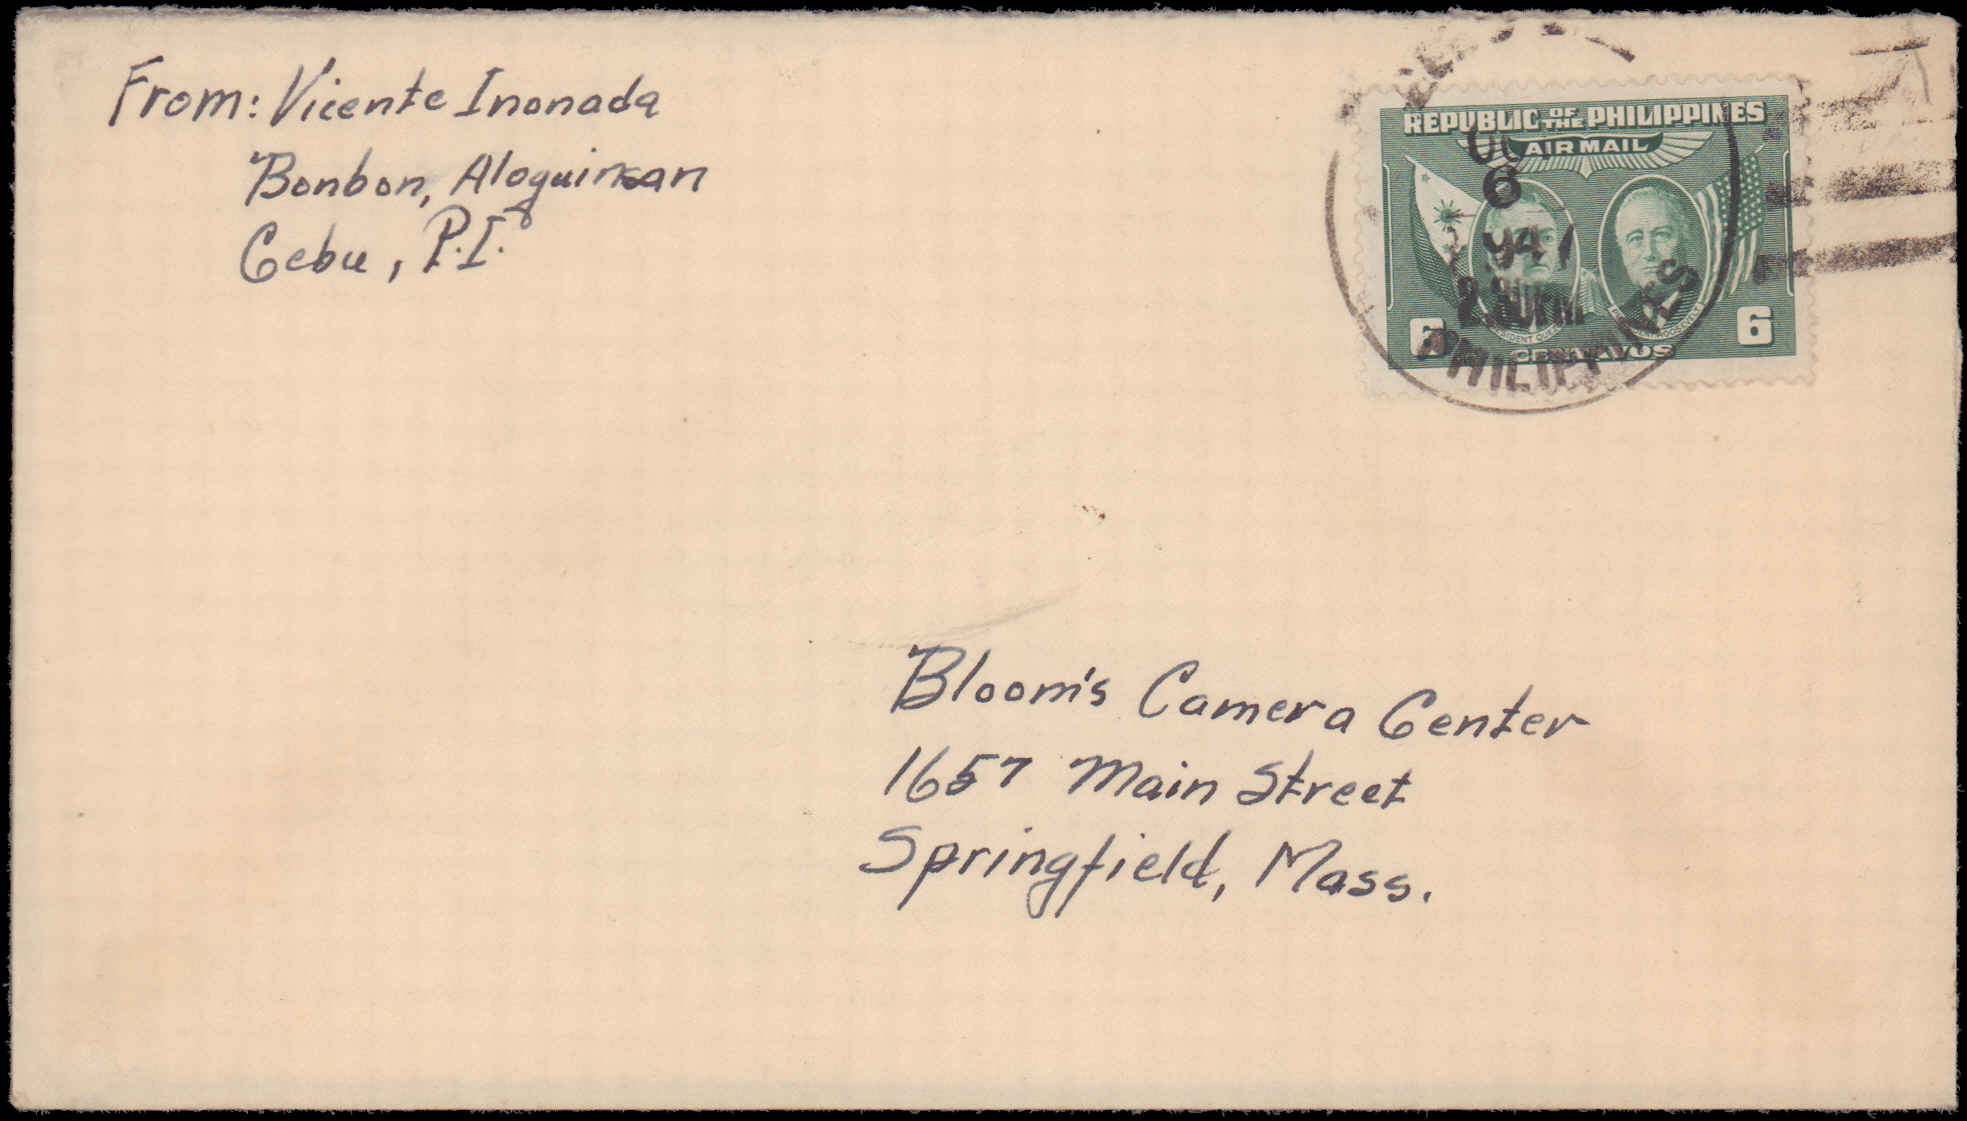 From: Vicente Inonada
Bonbon, Aloguinsan
Cebu, P.I.
REPUBLIC OF THE PHILIPPINES
AIR MAIL
6
2.30PM
PHILIPPINES
6 CENTAVOS 6
Bloom's Camera Center
1657 Main Street
Springfield, Mass.